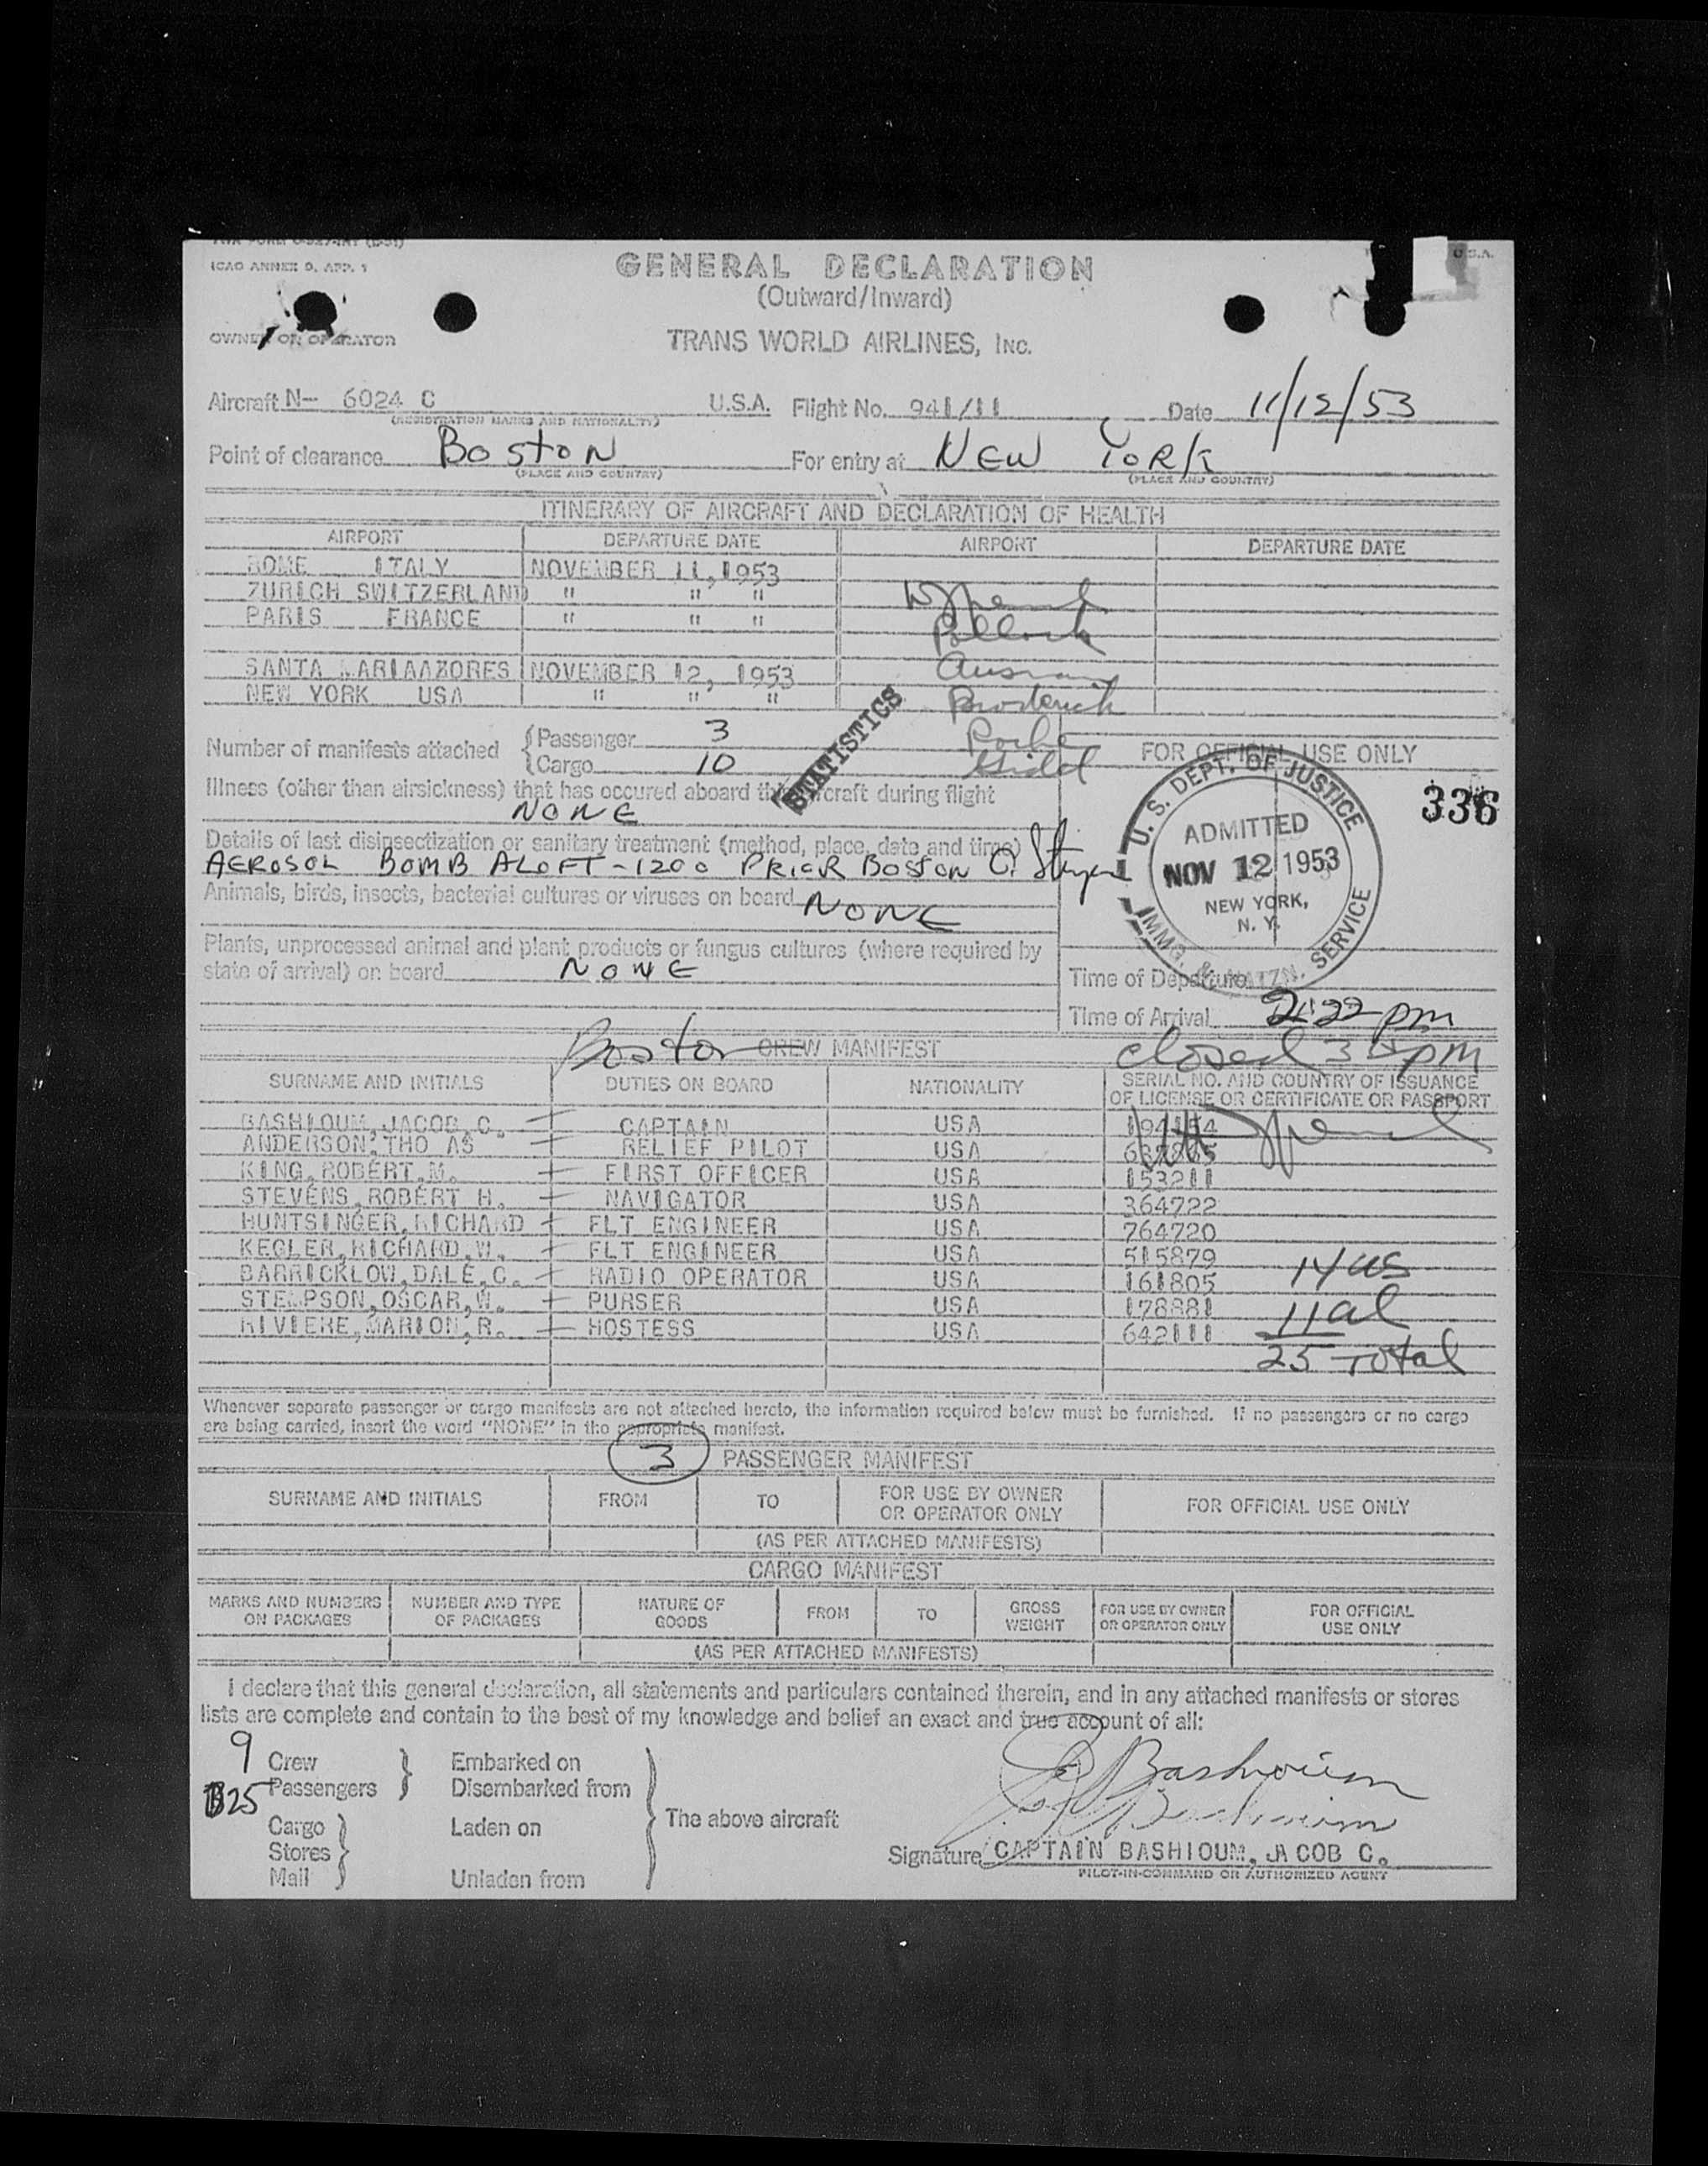 TWA FORM O-527-INT (D-51)
ICAO ANNEX 9, APP. 1
U.S.A.
GENERAL DECLARATION
(Outward/Inward)
OWNER OR OPERATOR TRANS WORLD AIRLINES, INC.
Aircraft N- 6024 C U.S.A. Flight No. 941/11 Date 11/12/53
(REGISTRATION MARKS AND NATIONALITY)
Point of clearance Boston For entry at NEW YORK
(PLACE AND COUNTRY) (PLACE AND COUNTRY)
ITINERARY OF AIRCRAFT AND DECLARATION OF HEALTH
AIRPORT DEPARTURE DATE AIRPORT DEPARTURE DATE
ROME ITALY NOVEMBER 11,1953
ZURICH SWITZERLAND " " "
PARIS FRANCE " " "
Pollock
SANTA MARIAAZORES NOVEMBER 12, 1953
NEW YORK USA " " " Broderick
STATISTICS
Number of manifests attached { Passenger 3
Cargo 10
FOR OFFICIAL USE ONLY
336
Illness (other than airsickness) that has occured aboard the aircraft during flight
NONE
Details of last disinsectization or sanitary treatment (method, place, date and time)
AEROSOL BOMB ALOFT-1200 PRIOR BOSTON
Animals, birds, insects, bacterial cultures or viruses on board NONE
Plants, unprocessed animal and plant products or fungus cultures (where required by
state of arrival) on board NONE
U. S. DEPT. OF JUSTICE
ADMITTED
NOV 12 1953
NEW YORK,
N. Y.
IMMG. & NATZN. SERVICE
Time of Departure
Time of Arrival 2:22 pm
Boston CREW MANIFEST closed pm
SURNAME AND INITIALS DUTIES ON BOARD NATIONALITY SERIAL NO. AND COUNTRY OF ISSUANCE
OF LICENSE OR CERTIFICATE OR PASSPORT
BASHIOUM,JACOB,C. CAPTAIN USA
ANDERSON,THO AS RELIEF PILOT USA
KING,ROBERT,M. FIRST OFFICER USA 153211
STEVENS,ROBERT H. NAVIGATOR USA 364722
HUNTSINGER,RICHARD FLT ENGINEER USA 764720
KEGLER,RICHARD,W. FLT ENGINEER USA 515879
BARRICKLOW,DALE,C. RADIO OPERATOR USA 161805
STEMPSON,OSCAR,W. PURSER USA 178881
RIVIERE,MARION,R. HOSTESS USA 642111
14 US
11 al
25 Total
Whenever separate passenger or cargo manifests are not attached hereto, the information required below must be furnished. If no passengers or no cargo
are being carried, insert the word "NONE" in the appropriate manifest.
3 PASSENGER MANIFEST
SURNAME AND INITIALS FROM TO FOR USE BY OWNER
OR OPERATOR ONLY FOR OFFICIAL USE ONLY
(AS PER ATTACHED MANIFESTS)
CARGO MANIFEST
MARKS AND NUMBERS
ON PACKAGES NUMBER AND TYPE
OF PACKAGES NATURE OF
GOODS FROM TO GROSS
WEIGHT FOR USE BY OWNER
OR OPERATOR ONLY FOR OFFICIAL
USE ONLY
(AS PER ATTACHED MANIFESTS)
I declare that this general declaration, all statements and particulars contained therein, and in any attached manifests or stores
lists are complete and contain to the best of my knowledge and belief an exact and true account of all:
9 Crew Embarked on
25 Passengers Disembarked from
Cargo Laden on The above aircraft
Stores
Mail Unladen from
Bashioum
Bashioum
Signature CAPTAIN BASHIOUM, JA COB C.
PILOT-IN-COMMAND OR AUTHORIZED AGENT